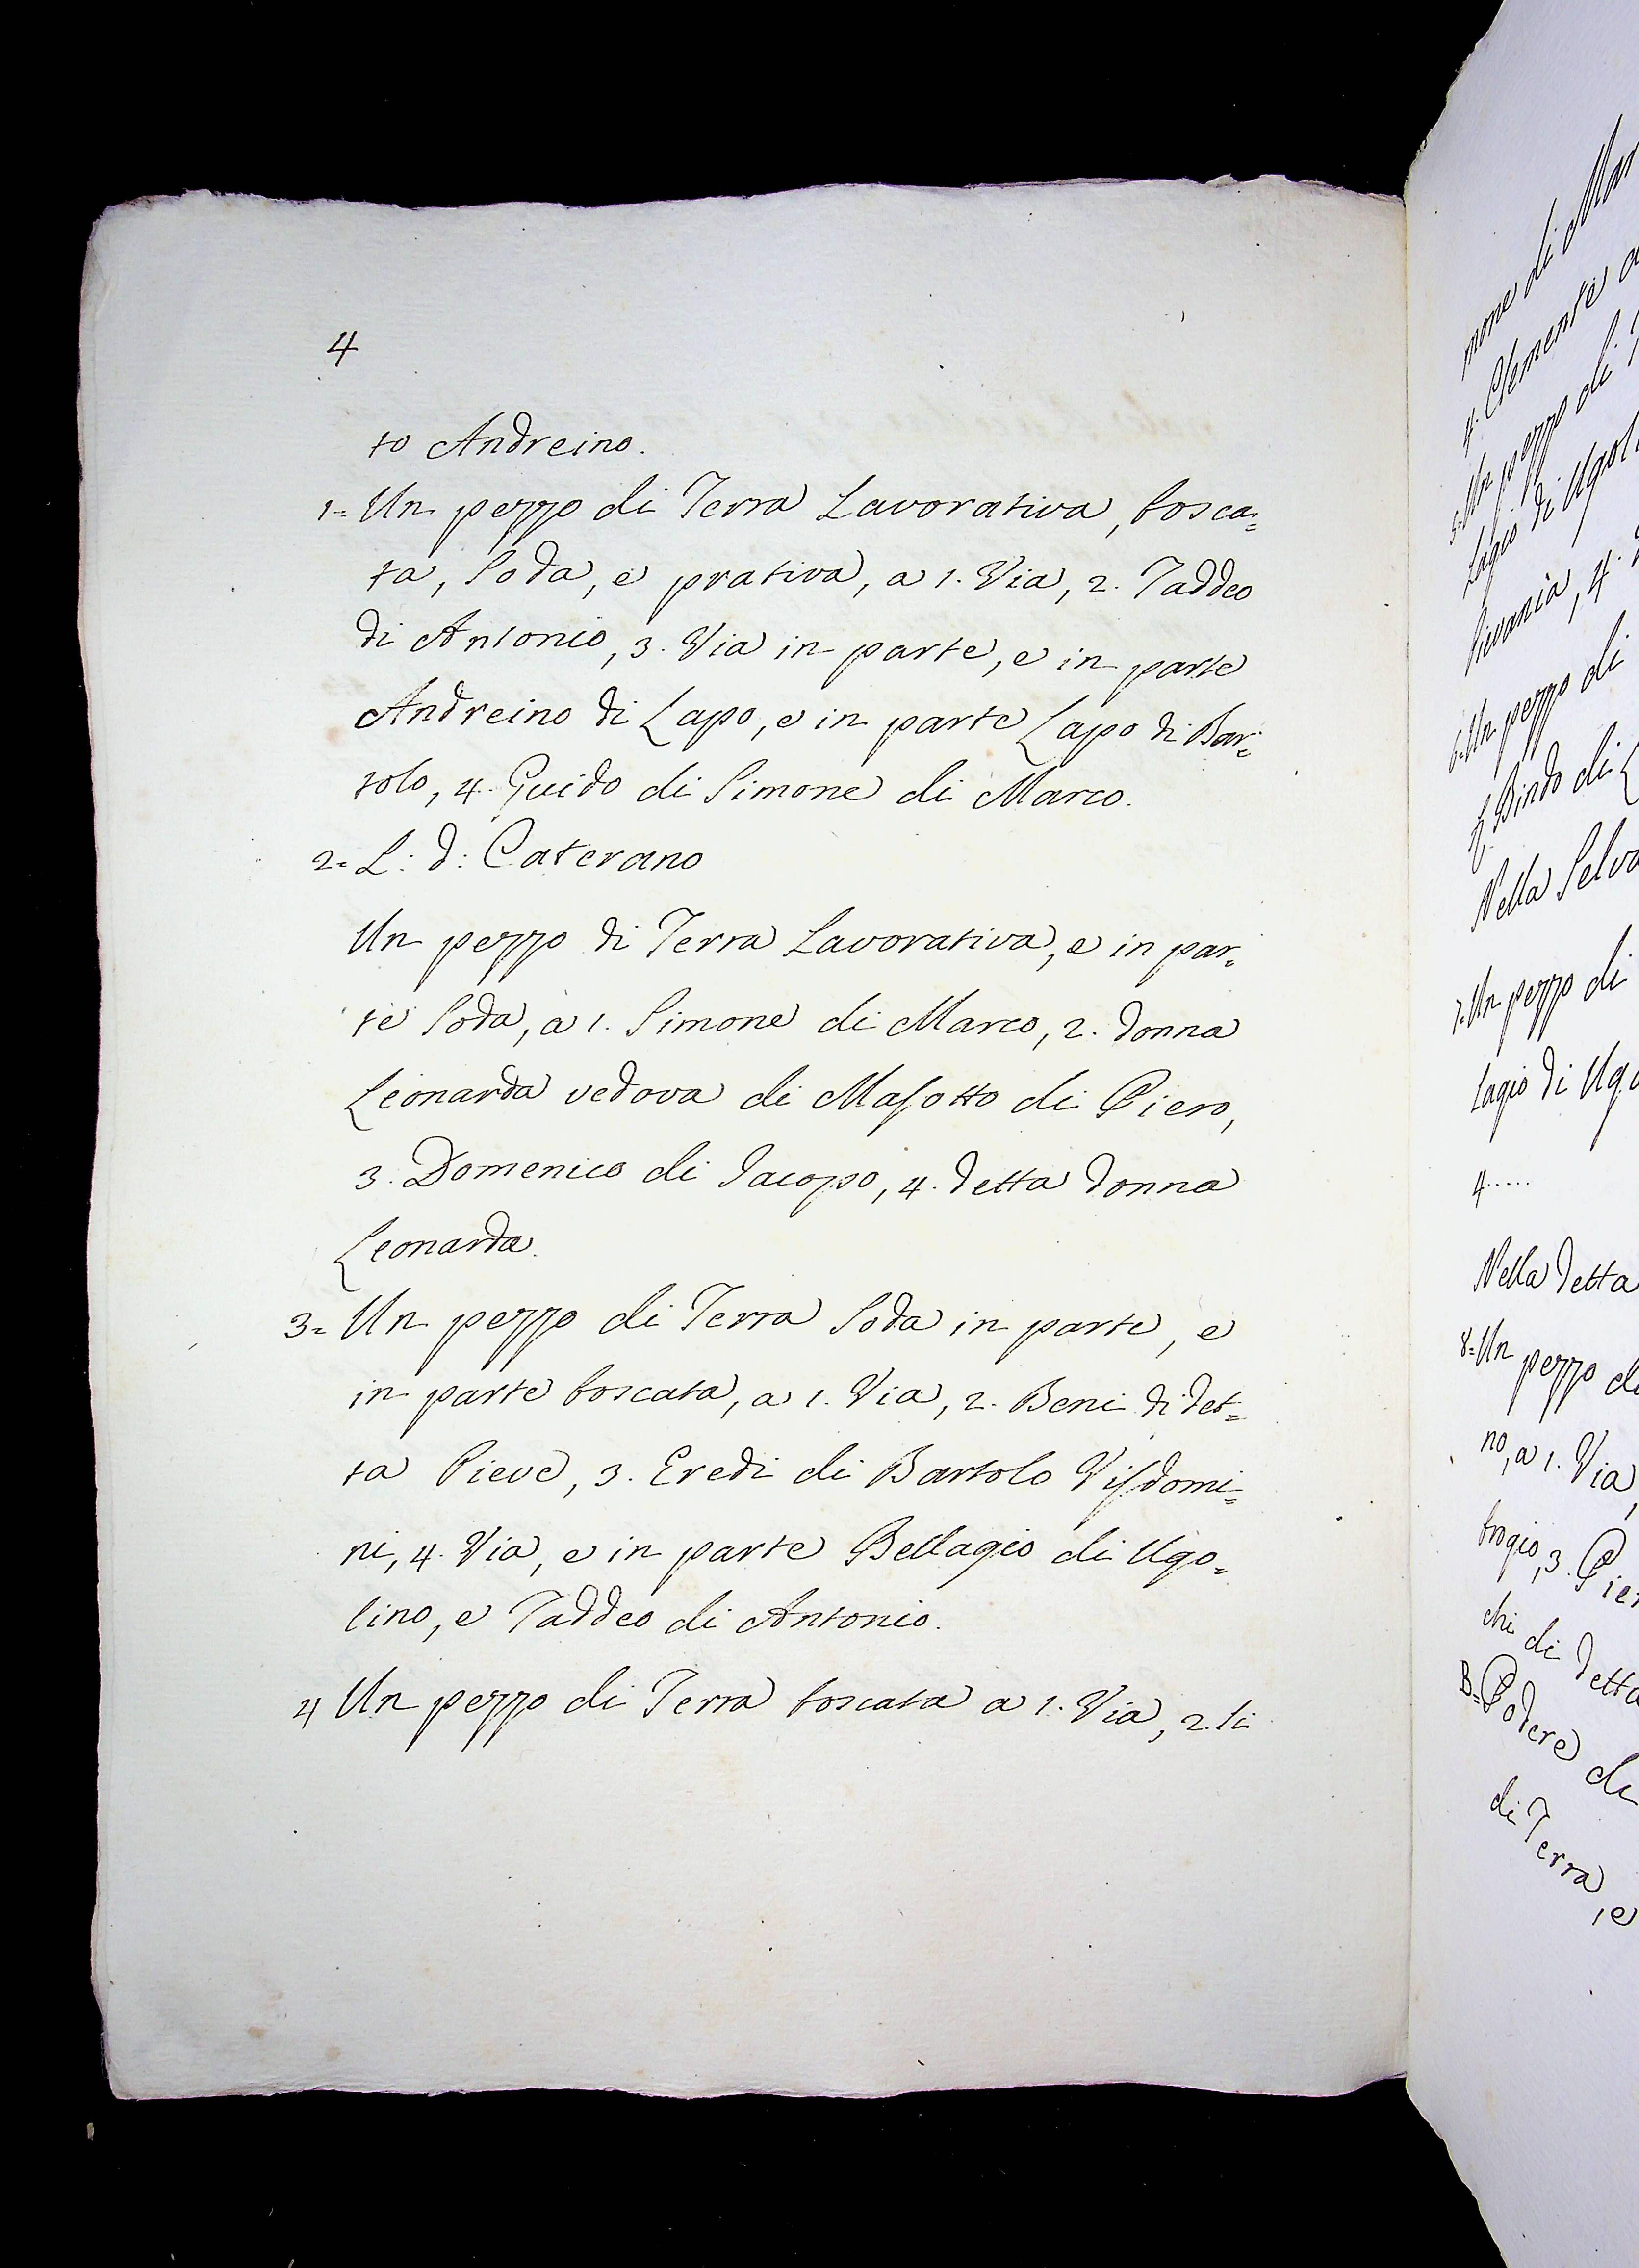 4
to Andreino.
1= Un pezzo di Terra Lavorativa, bosca=
ta, Soda, e prativa, a 1. Via, 2. Taddeo
di Antonio, 3. Via in parte, e in parte
Andreino di Lapo, e in parte Lapo di Bar=
tolo, 4. Guido di Simone di Marco.
2= L: d: Caterano
Un pezzo di Terra Lavorativa, e in par=
te Soda, a 1. Simone di Marco, 2. donna
Leonarda vedova di Masotto di Piero,
3. Domenico di Iacopo, 4. detta donna
Leonarda.
3= Un pezzo di Terra Soda in parte, e
in parte boscata, a 1. Via, 2. Beni di det=
ta Pieve, 3. Eredi di Bartolo Visdomi=
ni, 4. Via, e in parte Bellagio di Ugo=
lino, e Taddeo di Antonio.
4 Un pezzo di Terra boscata a 1. Via, 2. Si
mone di Mar
4. Clemente
5= Un pezzo di
lagio di Ugoli
Pievania, 4.
6= Un pezzo di
Bindo di
Nella Selva
7= Un pezzo di
lagio di Ugo
4.....
Nella detta
8= Un pezzo di
no, a 1. Via,
brogio, 3. Pier
chi di detta
B= Podere di
di Terra, e